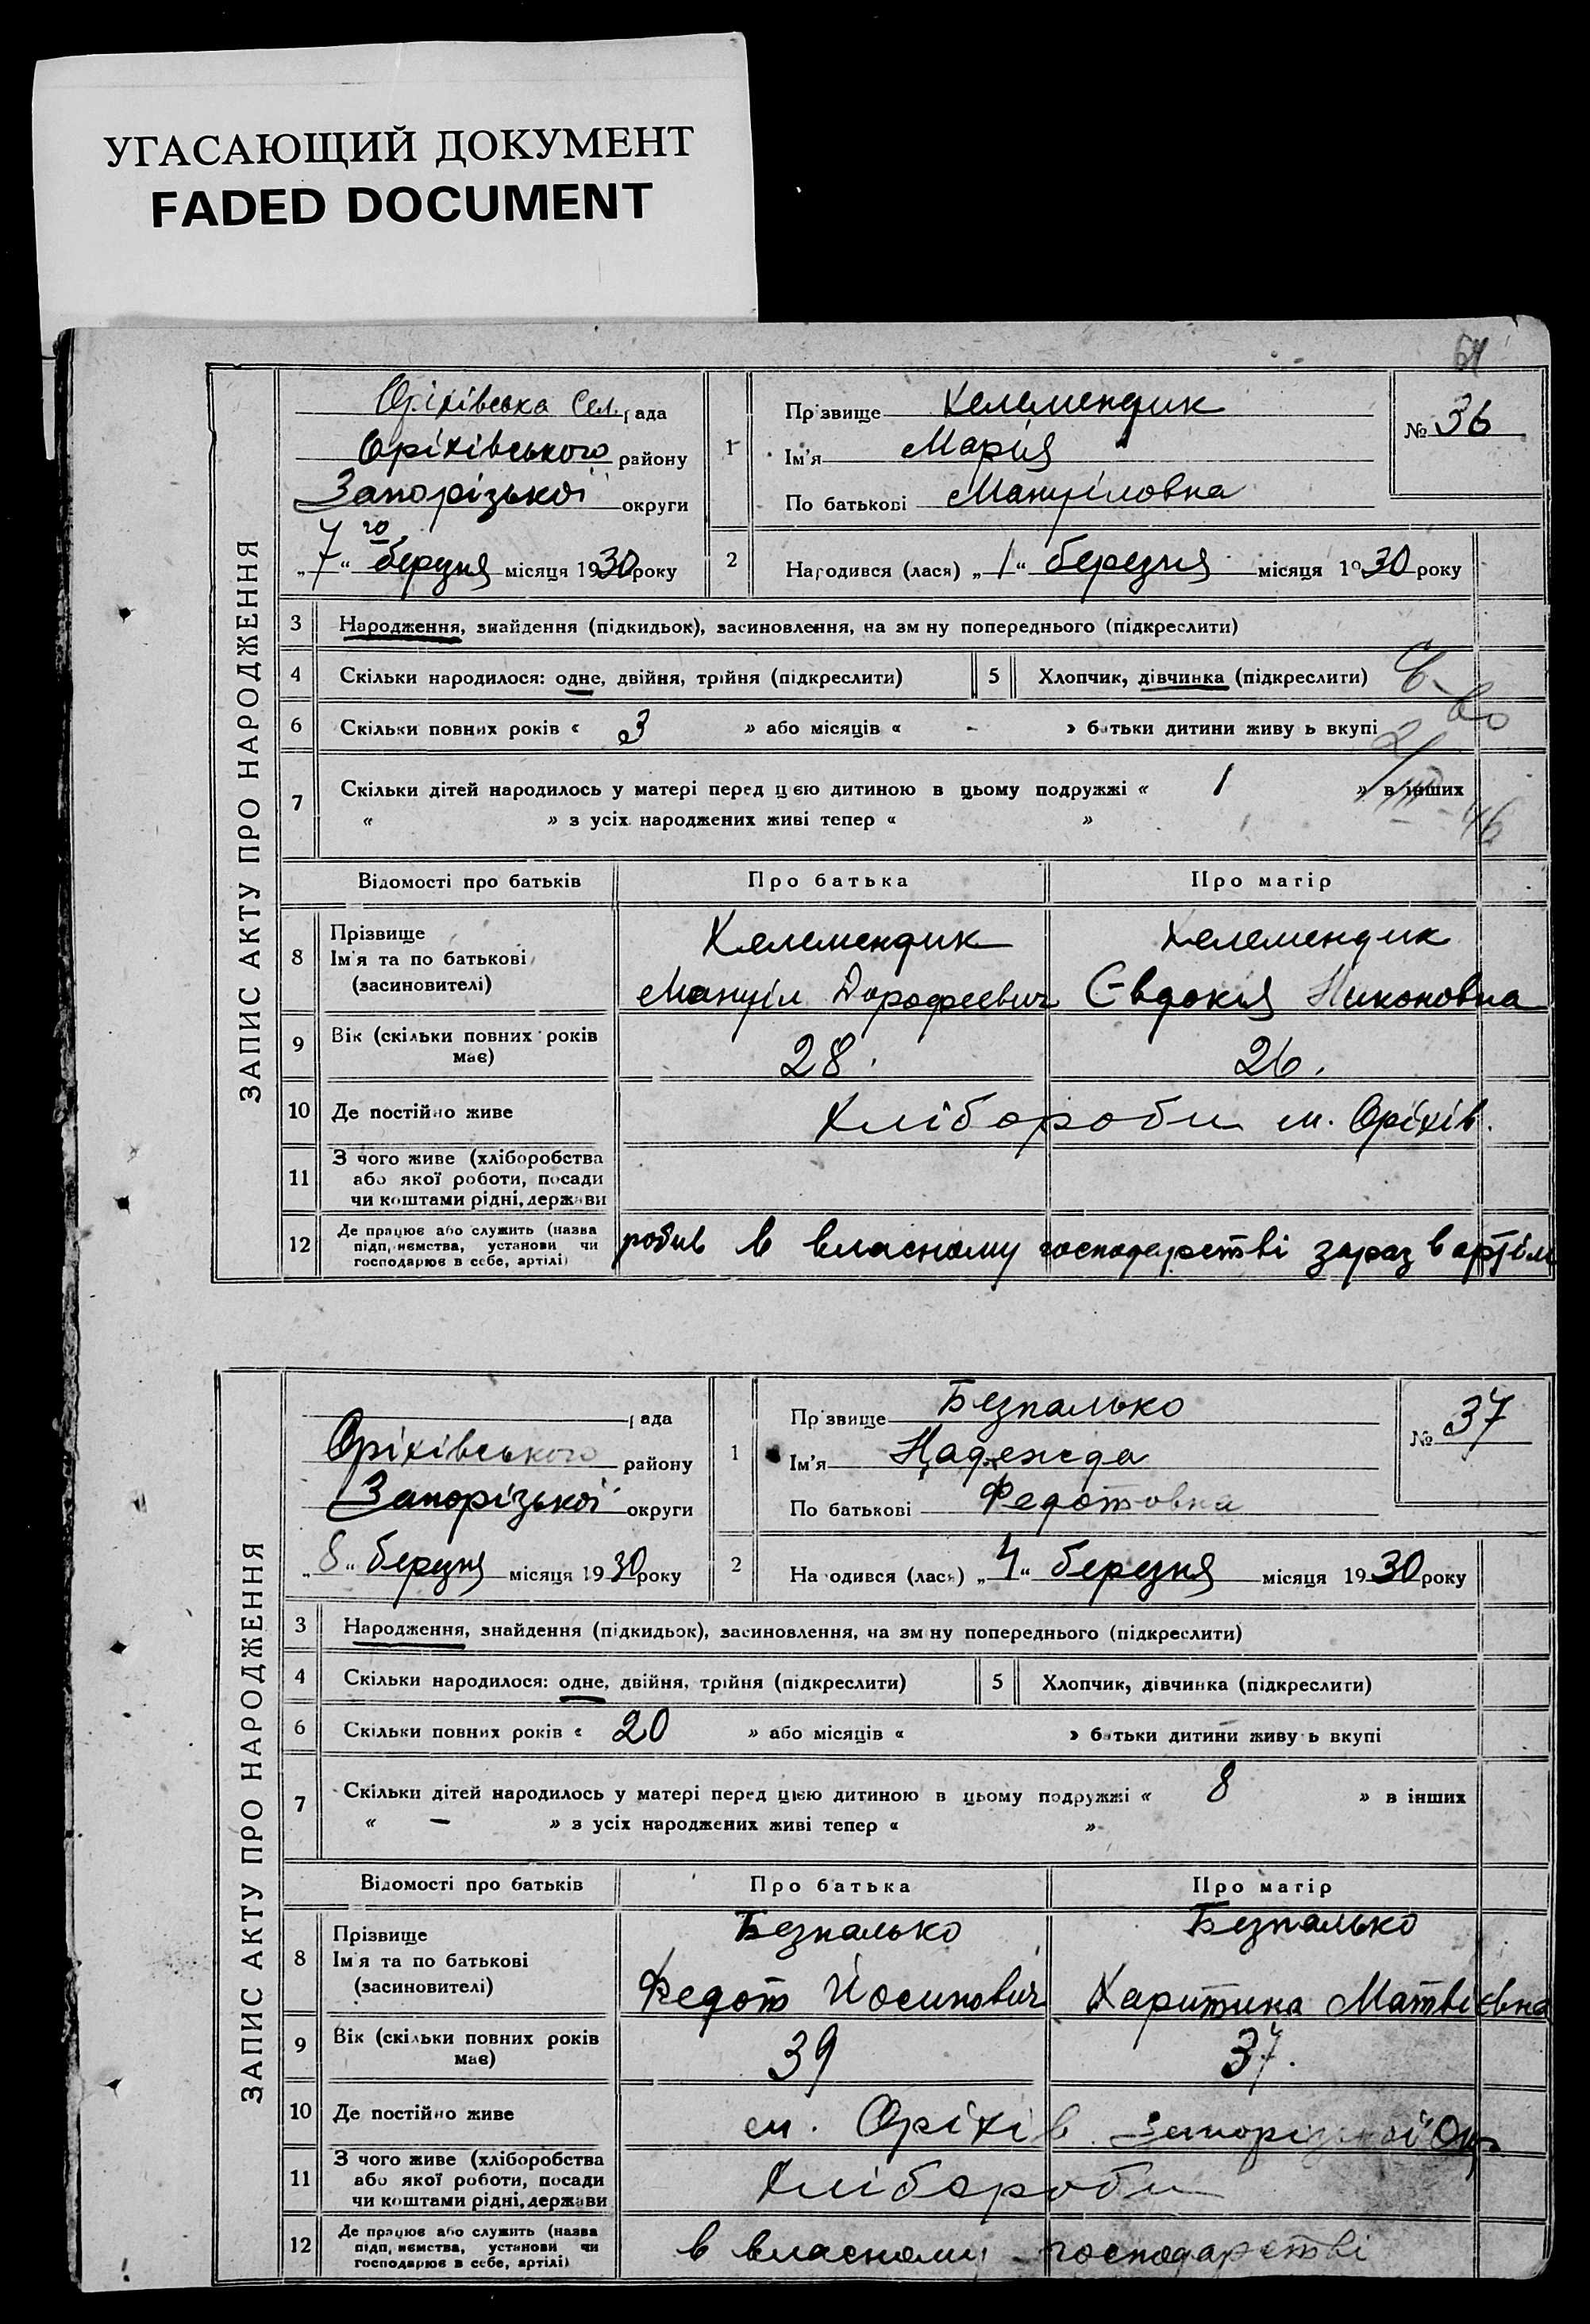 УГАСАЮЩИЙ ДОКУМЕНТ
FADED DOCUMENT
64
ЗАПИС АКТУ ПРО НАРОДЖЕННЯ
Оріхівська Сел. рада
Оріхівського району
Запорізької округи
„7го“ березня місяця 1930 року
1 Прізвище Келемендик
Ім'я Марія
По батькові Мануіловна
№ 36
2 Народився (лася) „1“ березня місяця 1930 року
3 Народження, знайдення (підкидьок), засиновлення, на зміну попереднього (підкреслити)
4 Скільки народилося: одне, двійня, трійня (підкреслити)
5 Хлопчик, дівчинка (підкреслити)
6 Скільки повних років « 3 » або місяців « - » батьки дитини живуть вкупі
7 Скільки дітей народилось у матері перед цією дитиною в цьому подружжі « 1 » в інших
« » з усіх народжених живі тепер « »
Відомості про батьків Про батька Про матір
8 Прізвище Келемендик Келемендик
Ім'я та по батькові
(засиновителі) Мануіл Дорофеевич Євдокія Никоновна
9 Вік (скільки повних років має) 28. 26.
10 Де постійно живе Хлібороби м. Оріхів.
11 З чого живе (хліборобства
або якої роботи, посади
чи коштами рідні, держави
12 Де працює або служить (назва
підприємства, установи чи
господарює в себе, артілі)
робив в власному господарстві зараз в артіли
ЗАПИС АКТУ ПРО НАРОДЖЕННЯ
рада
Оріхівського району
Запорізької округи
„8“ березня місяця 1930 року
1 Прізвище Безпалько
Ім'я Надежда
По батькові Федотовна
№ 37
2 Народився (лася) „4“ березня місяця 1930 року
3 Народження, знайдення (підкидьок), засиновлення, на зміну попереднього (підкреслити)
4 Скільки народилося: одне, двійня, трійня (підкреслити)
5 Хлопчик, дівчинка (підкреслити)
6 Скільки повних років « 20 » або місяців « » батьки дитини живуть вкупі
7 Скільки дітей народилось у матері перед цією дитиною в цьому подружжі « 8 » в інших
« - » з усіх народжених живі тепер « »
Відомості про батьків Про батька Про матір
8 Прізвище Безпалько Безпалько
Ім'я та по батькові
(засиновителі) Федот Йосипович Харитина Матвієвна
9 Вік (скільки повних років має) 39 37.
10 Де постійно живе м. Оріхів Запорізької Окр
11 З чого живе (хліборобства
або якої роботи, посади
чи коштами рідні, держави
Хлібороби
12 Де працює або служить (назва
підприємства, установи чи
господарює в себе, артілі)
в власному господарстві